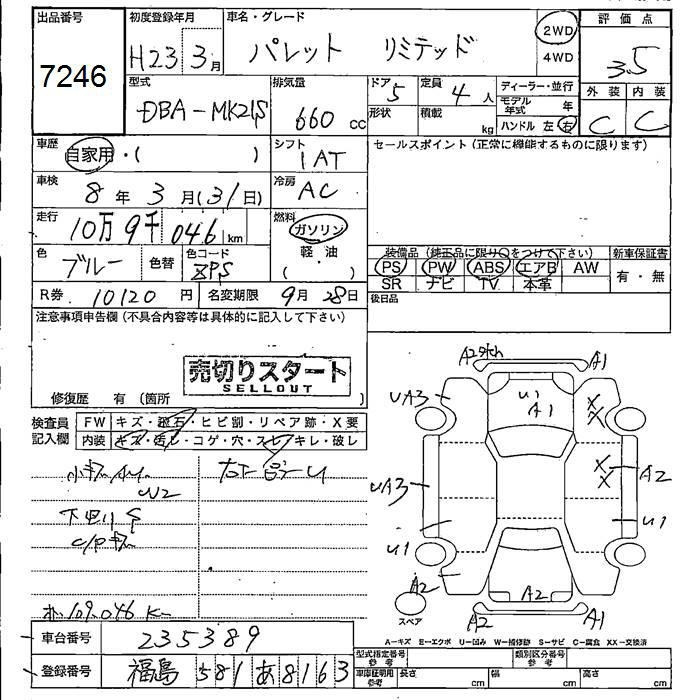 出品番号
7246
初度登録年月
H23 3月
車名・グレード
パレット リミテッド
2WD
4WD
評価点
3.5
外装 内装
C C
型式
DBA-MK21S
排気量
660 cc
ドア 5
形状
定員 4人
積載 kg
ディーラー・並行
モデル年式 年
ハンドル 左・右
車歴
自家用・( )
シフト
1AT
セールスポイント(正常に機能するものに限ります)
車検
8年 3月(31日)
冷房
AC
走行
10万9千046km
燃料
ガソリン
軽・油
( )
色
ブルー
色替
色コード
ZPS
装備品(純正品に限り○をつけて下さい)
PS PW ABS エアB AW
SR ナビ TV 本革
新車保証書
有・無
R券 10120円
名変期限 9月28日
後日品
注意事項申告欄(不具合内容等は具体的に記入して下さい)
売切りスタート
SELLOUT
修復歴 有(箇所 )
検査員記入欄
FW キズ・飛石・ヒビ割・リペア跡・X要
内装 キズ・汚レ・コゲ・穴・スレ・キレ・破レ
W2
下回りS
C/Pキズ
109,046K
A2 A1
UA3
U1
A1
UA3
A2
U1
U1
A2
A2
A2
A1
スペア
A-キズ E-エクボ U-凹み W-補修跡 S-サビ C-腐食 XX-交換済
車台番号
235389
登録番号
福島 581 あ 8163
型式指定番号 参考
類別区分番号 参考
車庫証明用 参考
長さ cm
幅 cm
高さ cm